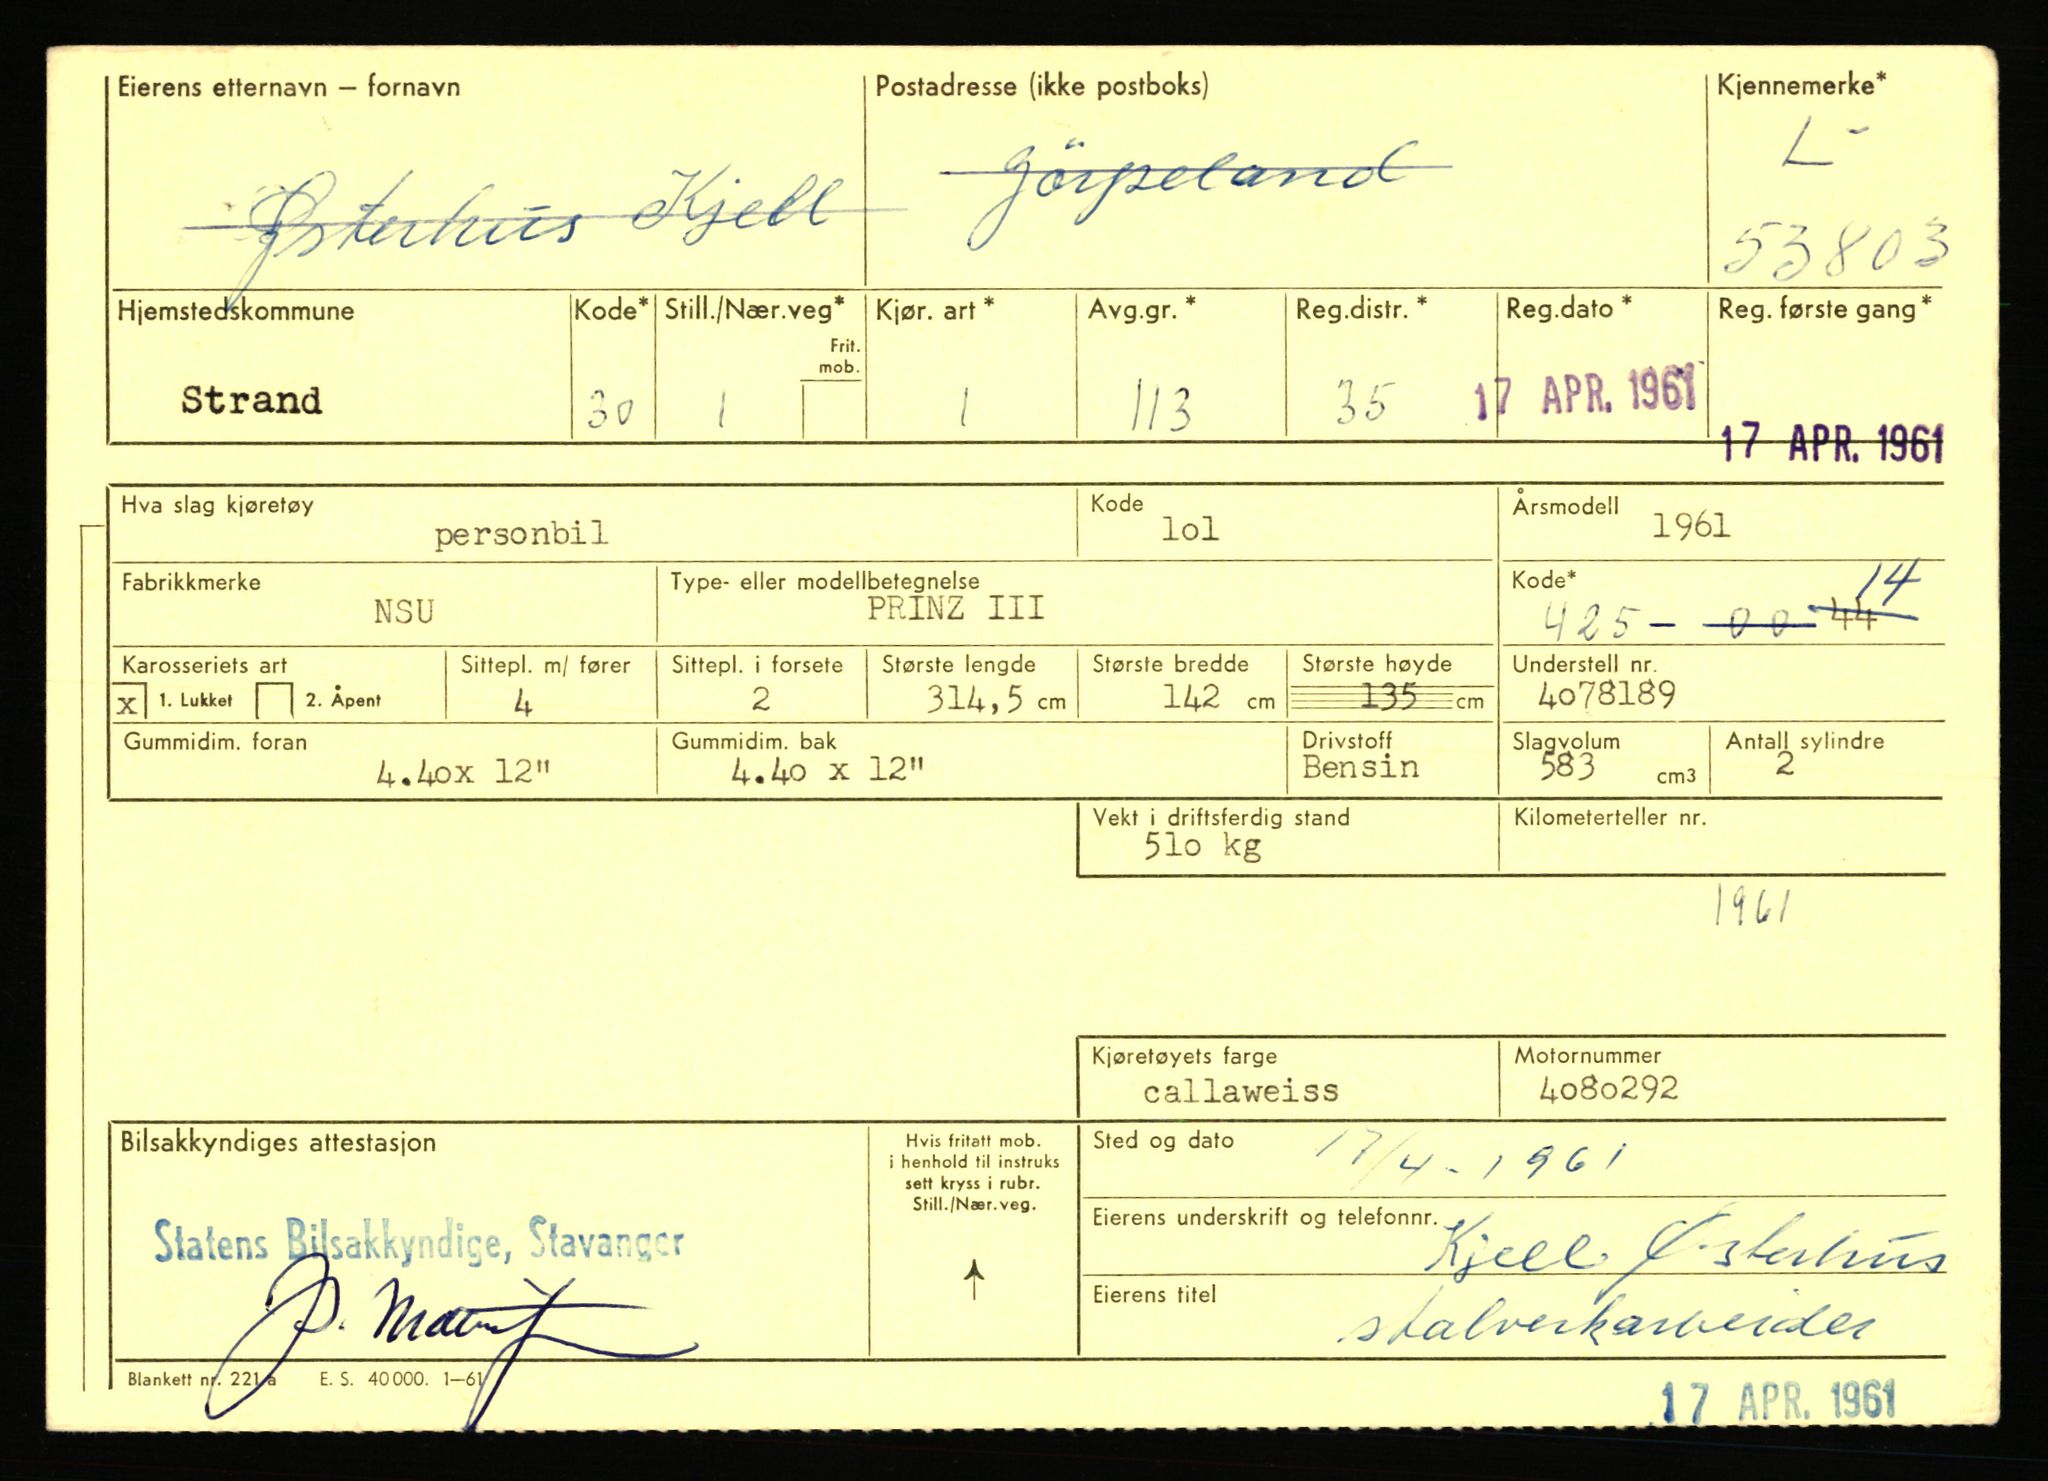 Eierens etternavn – fornavn Postadresse (ikke postboks) Kjennemerke*
Østerhus Kjell Jörpeland L-
53803
Hjemstedskommune Kode* Still./Nær.veg* Kjør. art* Avg.gr.* Reg.distr.* Reg.dato* Reg. første gang*
Frit.
mob.
Strand 30 1 1 113 35 17 APR. 1961
17 APR. 1961
Hva slag kjøretøy Kode Årsmodell
personbil lol 1961
Fabrikkmerke Type- eller modellbetegnelse Kode* 14
NSU PRINZ III 425 – 00 44
Karosseriets art Sittepl. m/ fører Sittepl. i forsete Største lengde Største bredde Største høyde Understell nr.
x 1. Lukket 2. Åpent 4 2 314,5 cm 142 cm 135 cm 4078189
Gummidim. foran Gummidim. bak Drivstoff Slagvolum Antall sylindre
4.40x 12" 4.40 x 12" Bensin 583 cm3 2
Vekt i driftsferdig stand Kilometerteller nr.
5lo kg
1961
Kjøretøyets farge Motornummer
callaweiss 4080292
Bilsakkyndiges attestasjon Hvis fritatt mob. Sted og dato 17/4-1961
i henhold til instruks
sett kryss i rubr.
Still./Nær.veg.
Statens Bilsakkyndige, Stavanger
Eierens underskrift og telefonnr. Kjell Østerhus
Eierens titel stalverkarbeider
Blankett nr. 221 a E. S. 40 000. 1–61
17 APR. 1961